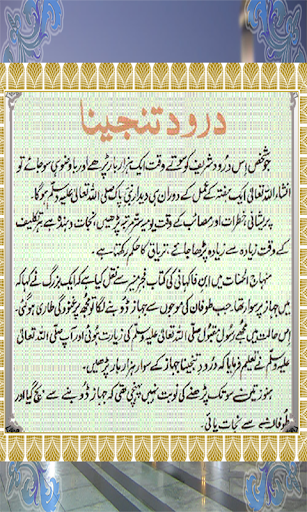 درود تنجینا
جو شخص اس درود شریف کو سوتے وقت ایک ہزار بار پڑھے اور با وضو ہی سو جائے تو
انشاء اللہ تعالیٰ ایک ہفتہ کے عمل کے دوران ہی دیدار نبی پاک صلی اللہ تعالیٰ علیہ وسلم ہوگا۔
پریشانی خطرات اور مصائب کے وقت یومیہ ستر مرتبہ پڑھیں، نجات دہندہ ہے ہر تکلیف
کے وقت زیادہ سے زیادہ پڑھا جائے، تریاق کا حکم رکھتا ہے۔
منہاج الحسنات میں ابن فاکہانی کی کتاب فجر منیر سے نقل کیا ہے کہ ایک بزرگ نے کہا کہ
میں جہاز پر سوار تھا، جب طوفان کی موجوں سے جہاز ڈوبنے لگا تو مجھ پر غنودگی طاری ہوگئی،
اس حالت میں مجھے رسول مقبول صلی اللہ تعالیٰ علیہ وسلم کی زیارت ہوئی اور آپ صلی اللہ تعالیٰ
علیہ وسلم نے تعلیم فرمایا کہ درود تنجینا جہاز کے سوار ہزار بار پڑھیں۔
ہنوز تین سو تک پڑھنے کی نوبت نہیں پہنچی تھی کہ جہاز ڈوبنے سے بچ گیا اور
طوفان سے سے نجات پائی۔